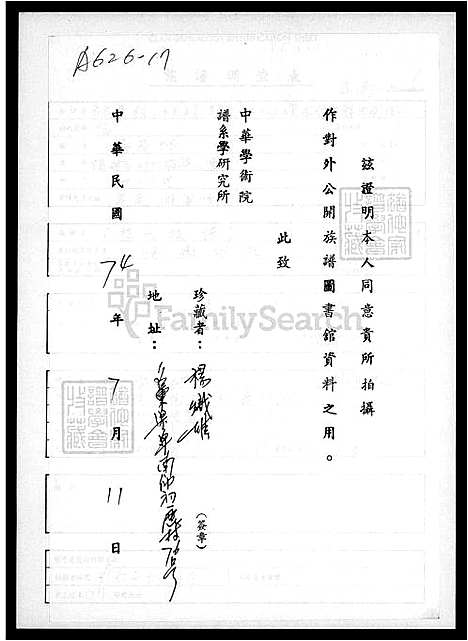 A626-17
茲證明本人同意貴所拍攝
作對外公開族譜圖書館資料之用。
此致
中華學術院
譜系學研究所
珍藏者：楊 (簽章)
地址：苗栗縣南
中華民國74年7月11日
FamilySearch